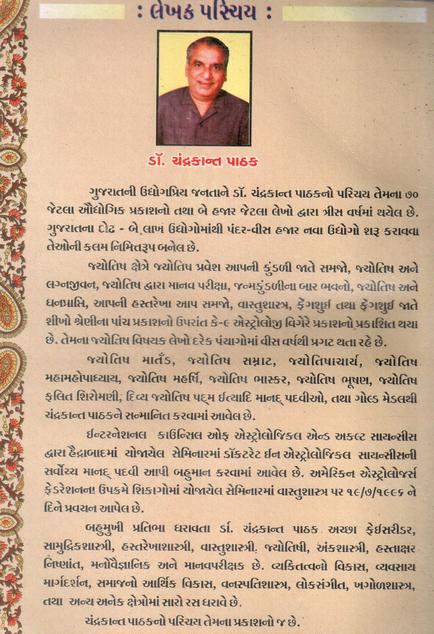 : લેખક પરિચય :
ડૉ. ચંદ્રકાન્ત પાઠક
ગુજરાતની ઉદ્યોગપ્રિય જનતાને ડૉ. ચંદ્રકાન્ત પાઠકનો પરિચય તેમના ૭૦
જેટલા ઔદ્યોગિક પ્રકાશનો તથા બે હજાર જેટલા લેખો દ્વારા ત્રીસ વર્ષમાં થયેલ છે.
ગુજરાતના દોઢ - બે લાખ ઉદ્યોગોમાંથી પંદર-વીસ હજાર નવા ઉદ્યોગો શરૂ કરાવવા
તેઓની કલમ નિમિત્તરૂપ બનેલ છે.
જ્યોતિષ ક્ષેત્રે જ્યોતિષ પ્રવેશ આપની કુંડળી જાતે સમજો, જ્યોતિષ અને
લગ્નજીવન, જ્યોતિષ દ્વારા માનવ પરીક્ષા, જન્મકુંડળીના બાર ભવનો, જ્યોતિષ અને
ધનપ્રાપ્તિ, આપની હસ્તરેખા આપ સમજો, વાસ્તુશાસ્ત્ર, ફેંગશુઈ તથા ફેંગશુઈ જાતે
શીખો શ્રેણીના પાંચ પ્રકાશનો ઉપરાંત કે-૯ એસ્ટ્રોલોજી વિગેરે પ્રકાશનો પ્રકાશિત થયા
છે. તેમના જ્યોતિષ વિષયક લેખો દરેક પંચાગોમાં વીસ વર્ષથી પ્રગટ થતા રહે છે.
જ્યોતિષ માર્તંડ, જ્યોતિષ સમ્રાટ, જ્યોતિષાચાર્ય, જ્યોતિષ
મહામહોપાધ્યાય, જ્યોતિષ મહર્ષિ, જ્યોતિષ ભાસ્કર, જ્યોતિષ ભૂષણ, જ્યોતિષ
ફલિત શિરોમણી, દિવ્ય જ્યોતિષ પદ્મ ઈત્યાદિ માનદ્ પદવીઓ, તથા ગોલ્ડ મેડલથી
ચંદ્રકાન્ત પાઠકને સન્માનિત કરવામાં આવેલ છે.
ઈન્ટરનેશનલ કાઉન્સિલ ઓફ એસ્ટ્રોલોજિકલ એન્ડ અકલ્ટ સાયન્સીસ
દ્વારા હૈદ્રાબાદમાં યોજાયેલ સેમિનારમાં ડૉકટરેટ ઈન એસ્ટ્રોલોજિકલ સાયન્સીસની
સર્વોચ્ચ માનદ્ પદવી આપી બહુમાન કરવામાં આવેલ છે. અમેરિકન એસ્ટ્રોલોજર્સ
ફેડરેશનના ઉપક્રમે શિકાગોમાં યોજાયેલ સેમિનારમાં વાસ્તુશાસ્ત્ર પર ૧૯/૭/૧૯૯૬ ને
દિને પ્રવચન આપેલ છે.
બહુમુખી પ્રતિભા ધરાવતા ર્ડા. ચંદ્રકાન્ત પાઠક અચ્છા ફેઈસરીડર,
સામુદ્રિકશાસ્ત્રી, હસ્તરેખાશાસ્ત્રી, વાસ્તુશાસ્ત્રી, જ્યોતિષી, અંકશાસ્ત્રી, હસ્તાક્ષર
નિષ્ણાંત, મનોવૈજ્ઞાનિક અને માનવપરીક્ષક છે. વ્યક્તિત્વનો વિકાસ, વ્યવસાય
માર્ગદર્શન, સમાજનો આર્થિક વિકાસ, વનસ્પતિશાસ્ત્ર, લોકસંગીત, ખગોળશાસ્ત્ર,
તથા અન્ય અનેક ક્ષેત્રોમાં સારો રસ ધરાવે છે.
ચંદ્રકાન્ત પાઠકનો પરિચય તેમના પ્રકાશનો જ છે.